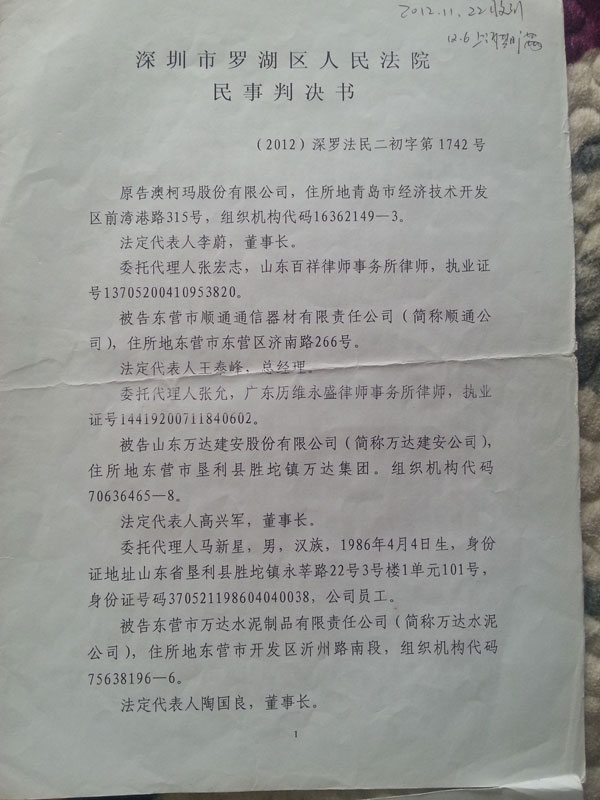 2012.11.22收到
12.6上诉期满
深圳市罗湖区人民法院
民事判决书
（2012）深罗法民二初字第1742号
原告澳柯玛股份有限公司，住所地青岛市经济技术开发
区前湾港路315号，组织机构代码16362149—3。
法定代表人李蔚，董事长。
委托代理人张宏志，山东百祥律师事务所律师，执业证
号13705200410953820。
被告东营市顺通通信器材有限责任公司（简称顺通公
司），住所地东营市东营区济南路266号。
法定代表人王泰峰，总经理。
委托代理人张允，广东历维永盛律师事务所律师，执业
证号14419200711840602。
被告山东万达建安股份有限公司（简称万达建安公司），
住所地东营市垦利县胜坨镇万达集团。组织机构代码
70636465—8。
法定代表人高兴军，董事长。
委托代理人马新星，男，汉族，1986年4月4日生，身份
证地址山东省垦利县胜坨镇永莘路22号3号楼1单元101号，
身份证号码370521198604040038，公司员工。
被告东营市万达水泥制品有限责任公司（简称万达水泥
公司），住所地东营市开发区沂州路南段，组织机构代码
75638196—6。
法定代表人陶国良，董事长。
1